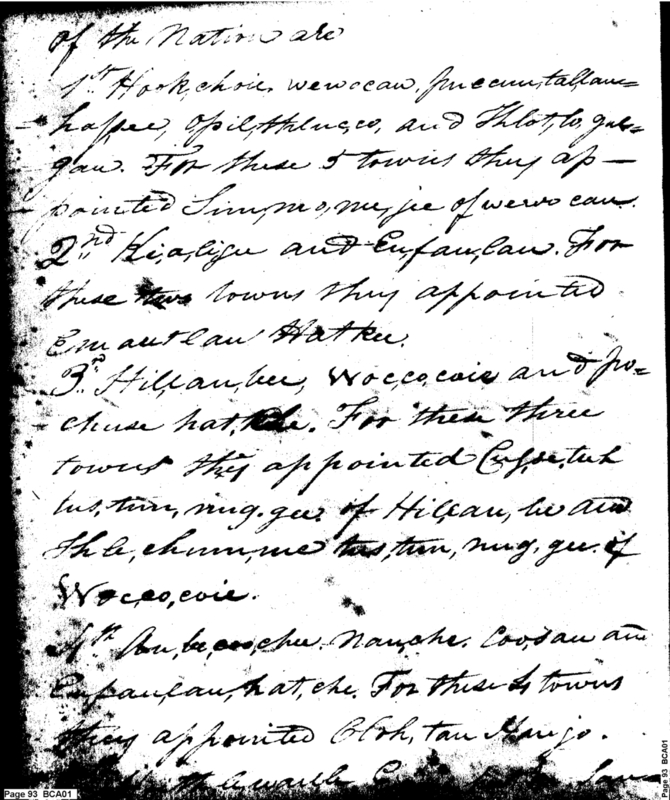 of the Nation are
1st. Hook,choie, wewocau, puccun,tallau=
hassee, Opil,thluc,co, and Thlot,lo,gul=
gau. For these 5 towns they ap—
pointed Sim,mo,me,jee of wewocau.
2nd. Ki,a,liju and Eu,fau,lau. For
these two towns they appointed
Emautlau Hatkee.
3rd. Hill,au,bee, Woc,co,coie and po=
chuse hat,che. For these three
towns they appointed
tus,tun,nug,gee of Hill,au,be and
Thle,chum,me tus,tun,nug,gee of
Woc,co,coie.
4th. Au,be,coo,chee. Nauche. Coosau and
Eufau,lau,hat,che. For these 4 towns
they appointed Oloh,tau Haujo.
Page 93 BCA01
Page 93 BCA01